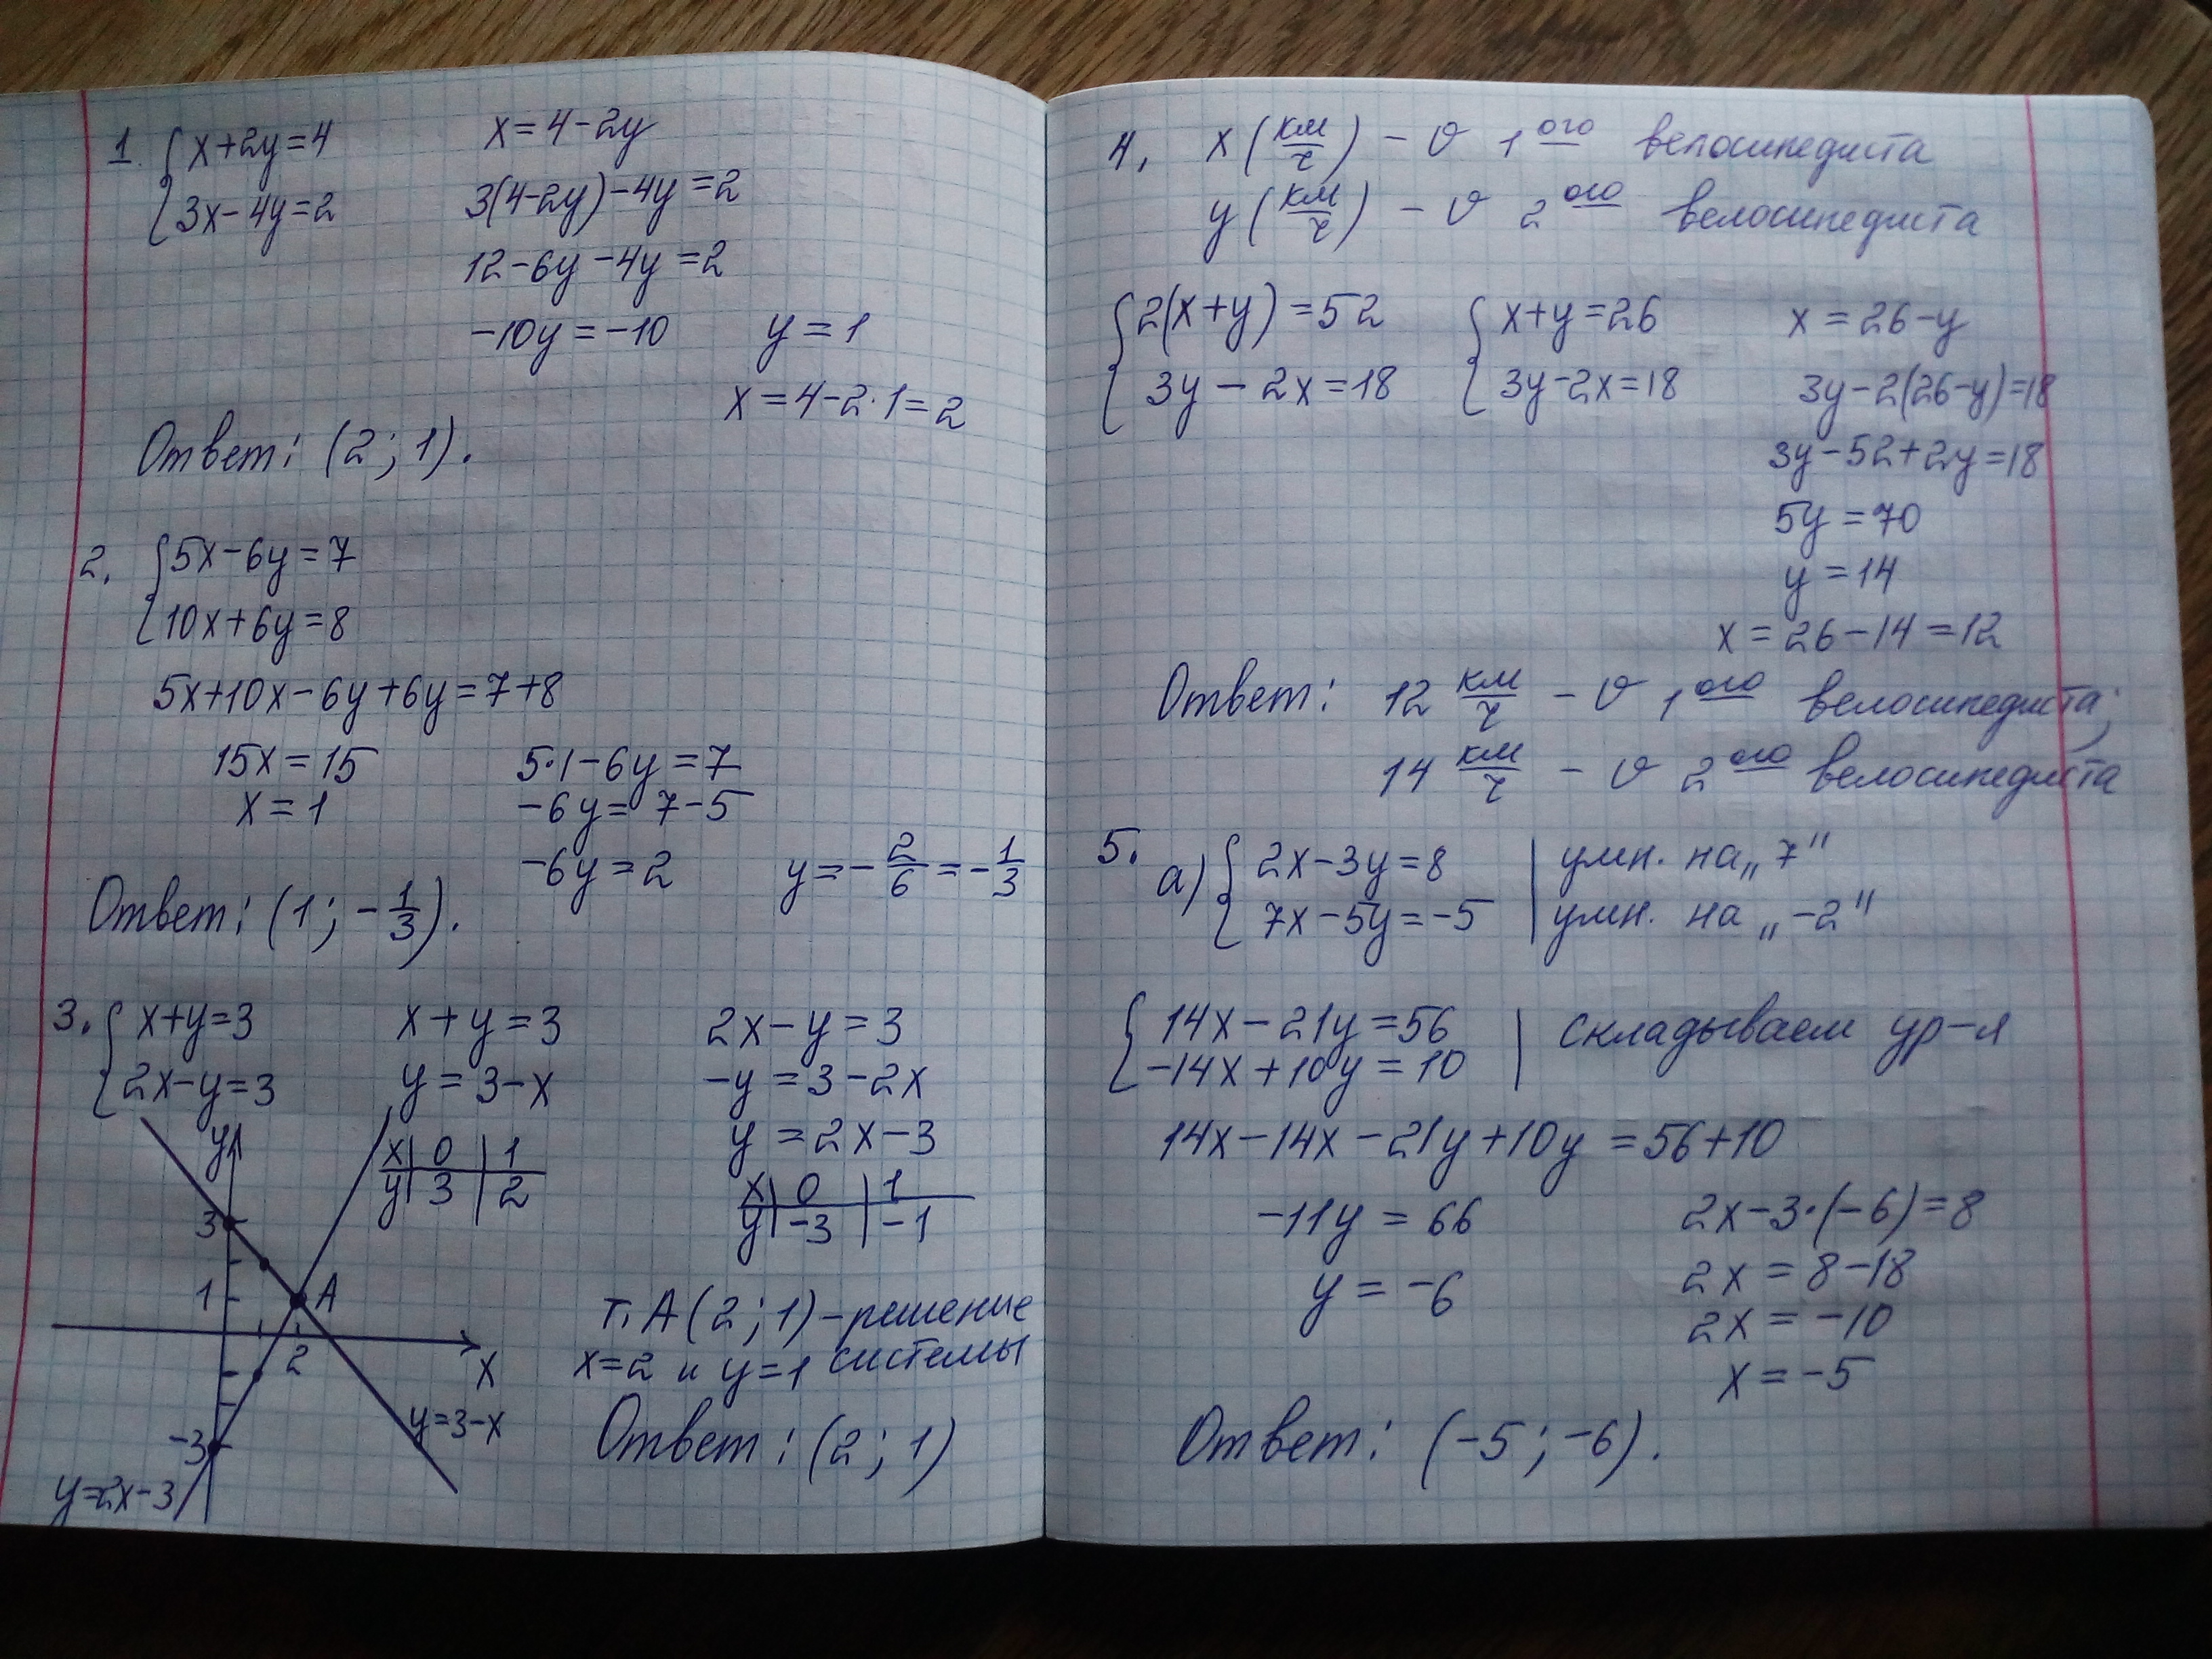 1. { x+2y=4
3x-4y=2
x=4-2y
3(4-2y)-4y=2
12-6y-4y=2
-10y=-10 y=1
x=4-2·1=2
Ответ: (2; 1).
2. { 5x-6y=7
10x+6y=8
5x+10x-6y+6y=7+8
15x=15
x=1
5·1-6y=7
-6y=7-5
-6y=2 y=-2/6=-1/3
Ответ: (1; -1/3).
3. { x+y=3
2x-y=3
x+y=3
y=3-x
x | 0 | 1
y | 3 | 2
2x-y=3
-y=3-2x
y=2x-3
x | 0 | 1
y | -3 | -1
y
3
1
A
2
x
-3
y=3-x
y=2x-3
т. A(2; 1)-решение
системы
x=2 и y=1
Ответ: (2; 1)
4. x (км/ч) - v 1ого велосипедиста
y (км/ч) - v 2ого велосипедиста
{ 2(x+y)=52
3y-2x=18
{ x+y=26
3y-2x=18
x=26-y
3y-2(26-y)=18
3y-52+2y=18
5y=70
y=14
x=26-14=12
Ответ: 12 км/ч - v 1ого велосипедиста;
14 км/ч - v 2ого велосипедиста
5. а) { 2x-3y=8 | умн. на „7"
7x-5y=-5 | умн. на „-2"
{ 14x-21y=56 | складываем ур-я
-14x+10y=10
14x-14x-21y+10y=56+10
-11y=66
y=-6
2x-3·(-6)=8
2x=8-18
2x=-10
x=-5
Ответ: (-5; -6).